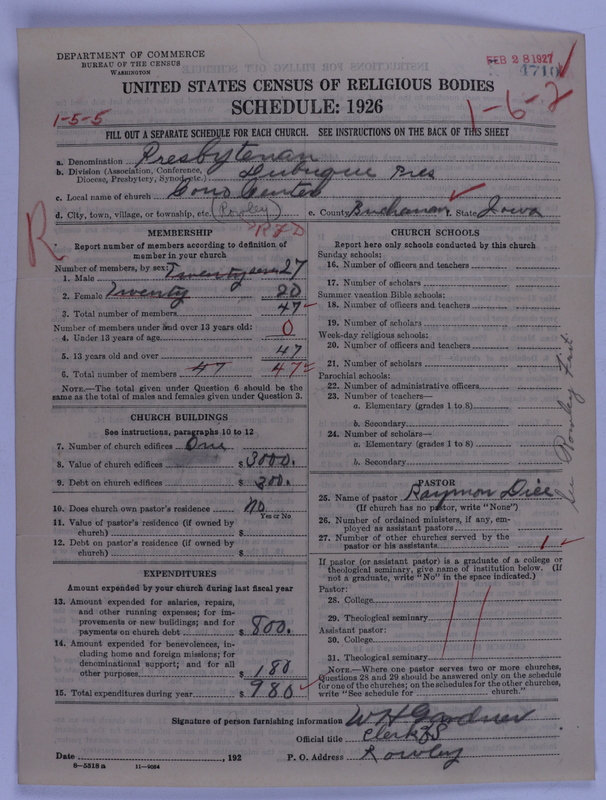 DEPARTMENT OF COMMERCE
BUREAU OF THE CENSUS
WASHINGTON
FEB 28 1927
4710
UNITED STATES CENSUS OF RELIGIOUS BODIES
SCHEDULE: 1926
1-5-5
1-6-2
FILL OUT A SEPARATE SCHEDULE FOR EACH CHURCH. SEE INSTRUCTIONS ON THE BACK OF THIS SHEET
a. Denomination Presbyterian
b. Division (Association, Conference, Diocese, Presbytery, Synod, etc.) Dubuque Pres
c. Local name of church Cono Center
d. City, town, village, or township, etc. (Rowley) e. County Buchanan State Iowa
R
RFD
MEMBERSHIP
Report number of members according to definition of
member in your church
Number of members, by sex:
1. Male Twenty seven 27
2. Female Twenty 20
3. Total number of members 47
Number of members under and over 13 years old:
4. Under 13 years of age 0
5. 13 years old and over 47
6. Total number of members 47 47
NOTE.—The total given under Question 6 should be the
same as the total of males and females given under Question 3.
CHURCH BUILDINGS
See instructions, paragraphs 10 to 12
7. Number of church edifices One
8. Value of church edifices $ 3000.
9. Debt on church edifices $ 300.
10. Does church own pastor's residence No
Yes or No
11. Value of pastor's residence (if owned by
church) $
12. Debt on pastor's residence (if owned by
church) $
EXPENDITURES
Amount expended by your church during last fiscal year
13. Amount expended for salaries, repairs,
and other running expenses; for im-
provements or new buildings; and for
payments on church debt $ 800.
14. Amount expended for benevolences, in-
cluding home and foreign missions; for
denominational support; and for all
other purposes $ 180
15. Total expenditures during year $ 980
CHURCH SCHOOLS
Report here only schools conducted by this church
Sunday schools:
16. Number of officers and teachers
17. Number of scholars
Summer vacation Bible schools:
18. Number of officers and teachers
19. Number of scholars
Week-day religious schools:
20. Number of officers and teachers
21. Number of scholars
Parochial schools:
22. Number of administrative officers
23. Number of teachers—
a. Elementary (grades 1 to 8)
b. Secondary
24. Number of scholars—
a. Elementary (grades 1 to 8)
b. Secondary
See Rowley First
PASTOR
25. Name of pastor Raymon Dice
(If church has no pastor, write "None")
26. Number of ordained ministers, if any, em-
ployed as assistant pastors
27. Number of other churches served by the
pastor or his assistants 1
If pastor (or assistant pastor) is a graduate of a college or
theological seminary, give name of institution below. (If
not a graduate, write "No" in the space indicated.)
Pastor:
28. College
29. Theological seminary
Assistant pastor:
30. College
31. Theological seminary
NOTE.—Where one pastor serves two or more churches,
Questions 28 and 29 should be answered only on the schedule
for one of the churches; on the schedules for the other churches,
write "See schedule for church."
Signature of person furnishing information W H Gardner
Official title Clerk
Date , 192 P. O. Address Rowley
8-5518 a 11-9064